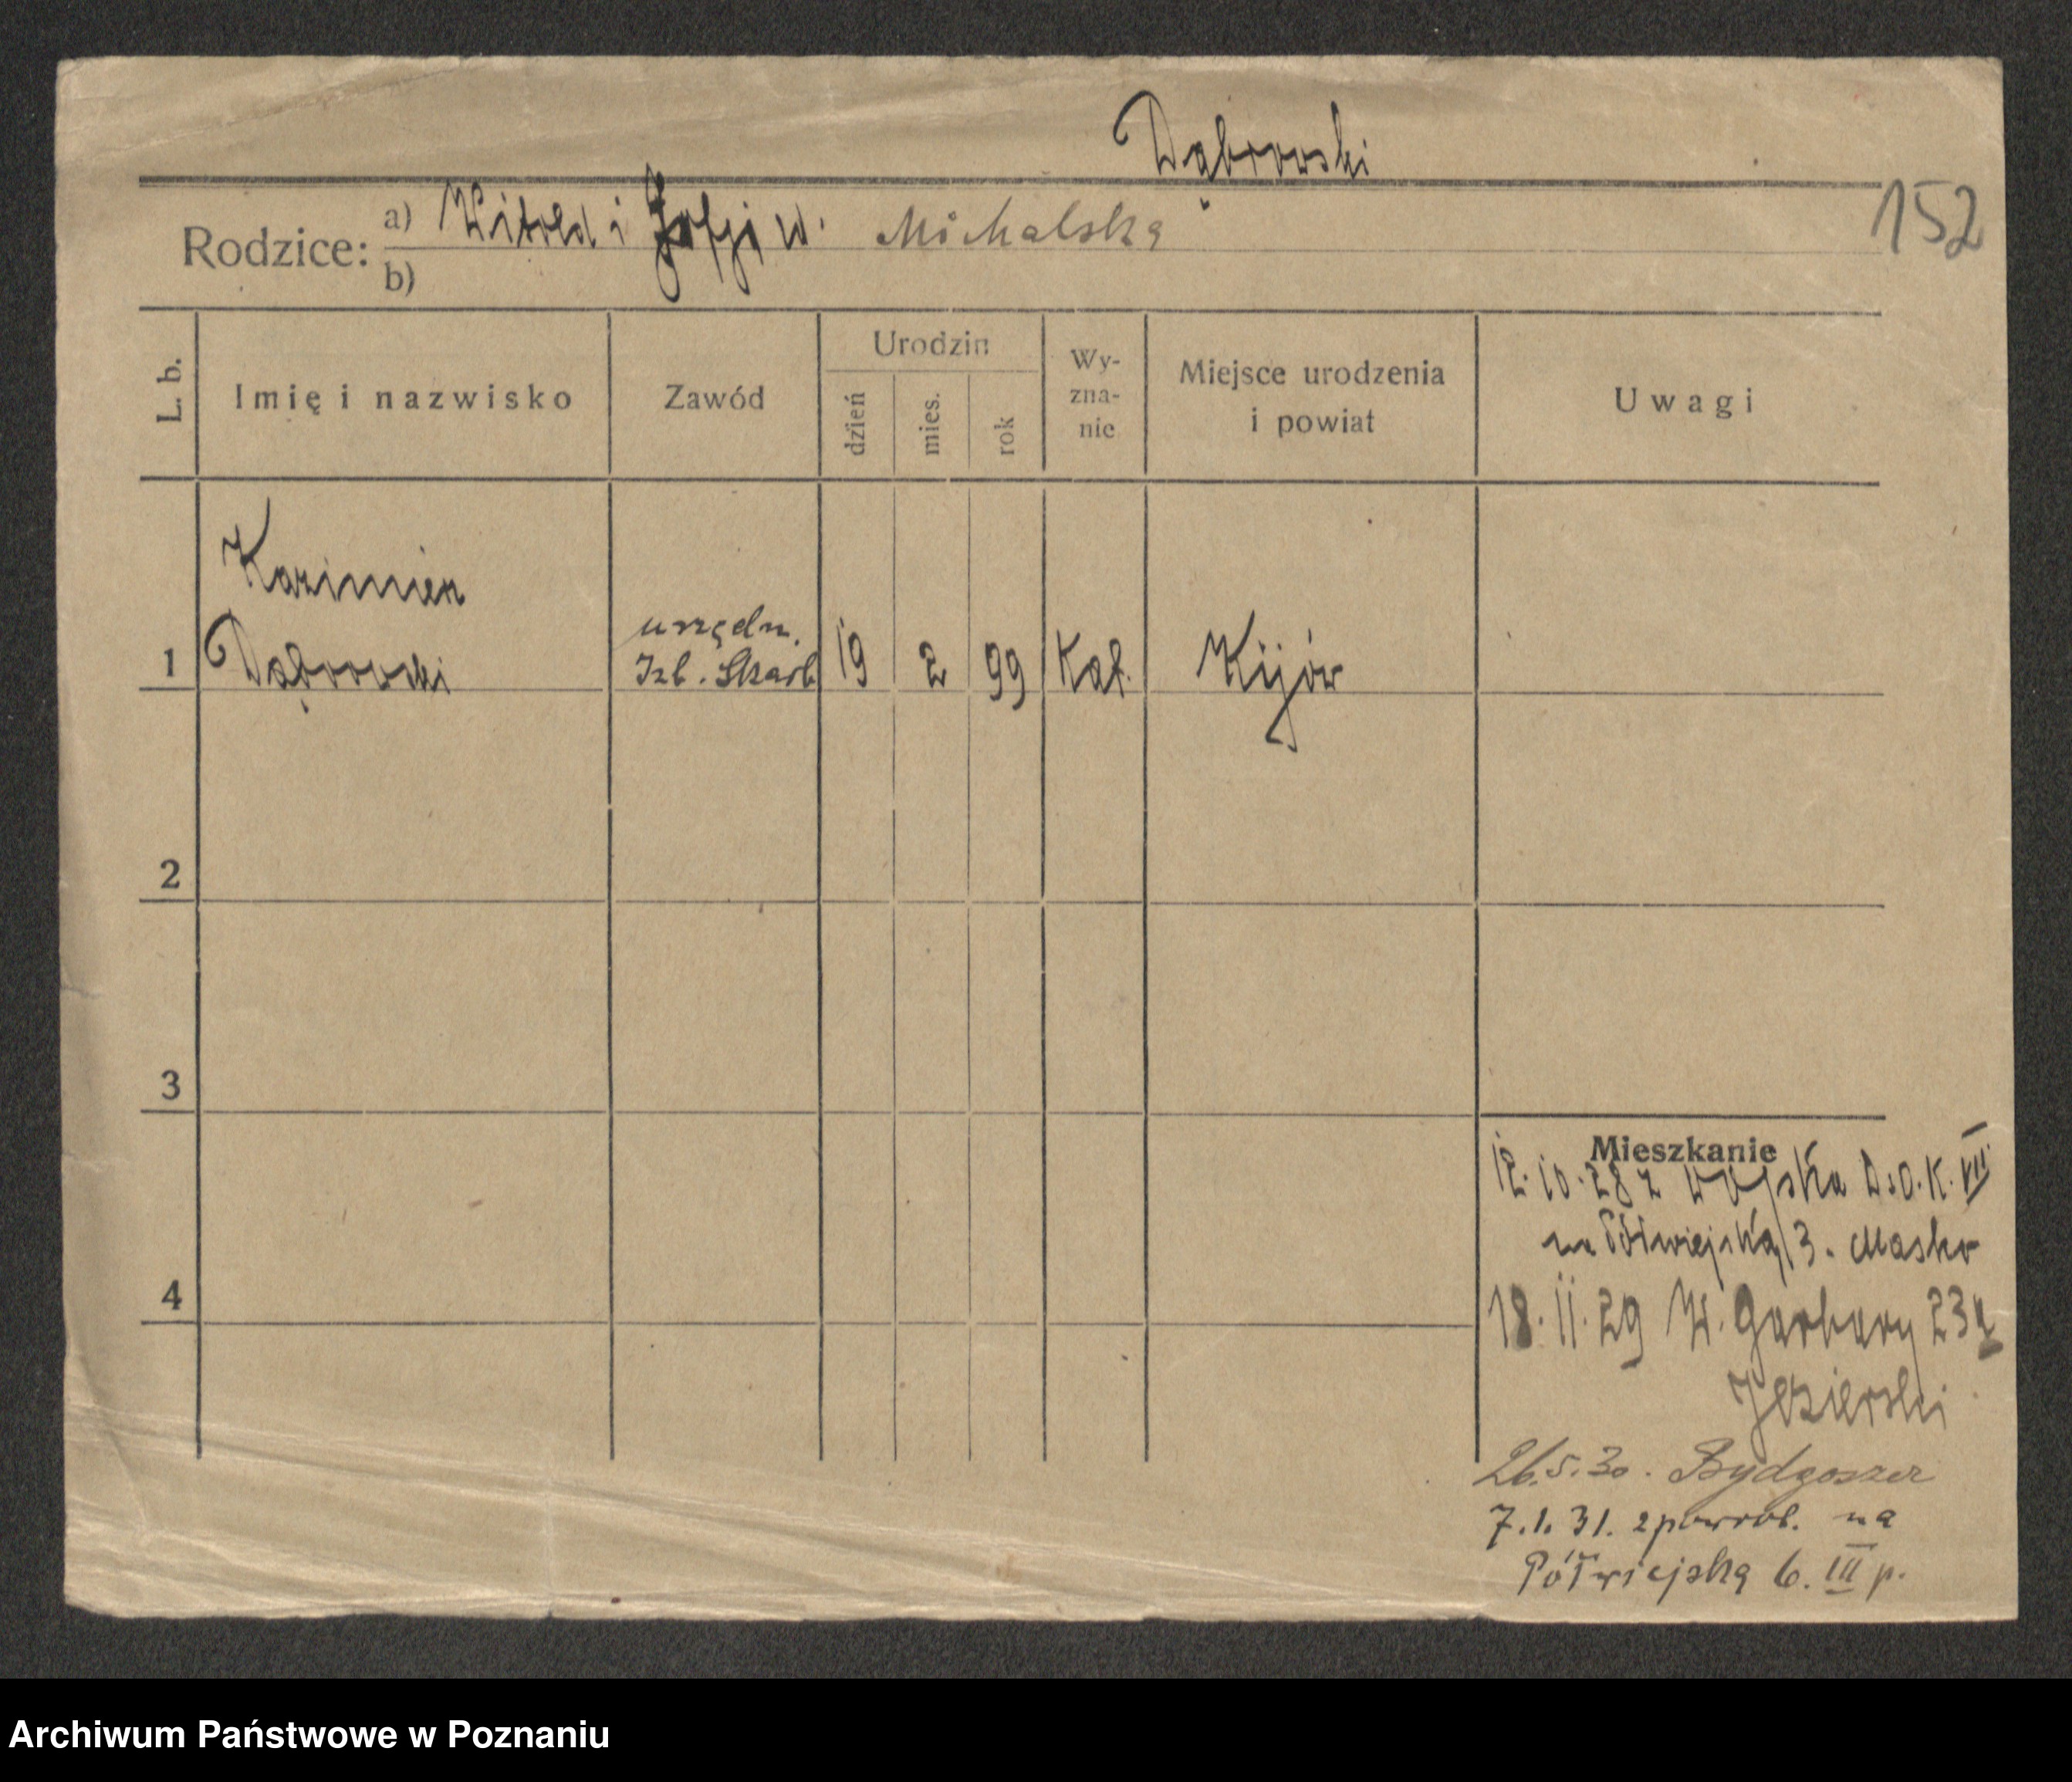 Dąbrowski
152
Rodzice: a) Witold i Zofji w. Michalska
b)
L. b. Imię i nazwisko Zawód Urodzin dzień mies. rok Wy-zna-nie Miejsce urodzenia i powiat Uwagi
Kazimierz
urzędn.
1 Dąbrowski Izb. Skarb. 19 2 99 Kat. Kijów
2
3
Mieszkanie
12.10.28 z wojska D.O.K. VII
na Półwiejską 3. Masko
4
18.11.29 W. Garbary 23
Jezierski
26.5.30. Bydgoszcz
7.1.31. z powrot. na
Półwiejską 6. III p.
Archiwum Państwowe w Poznaniu